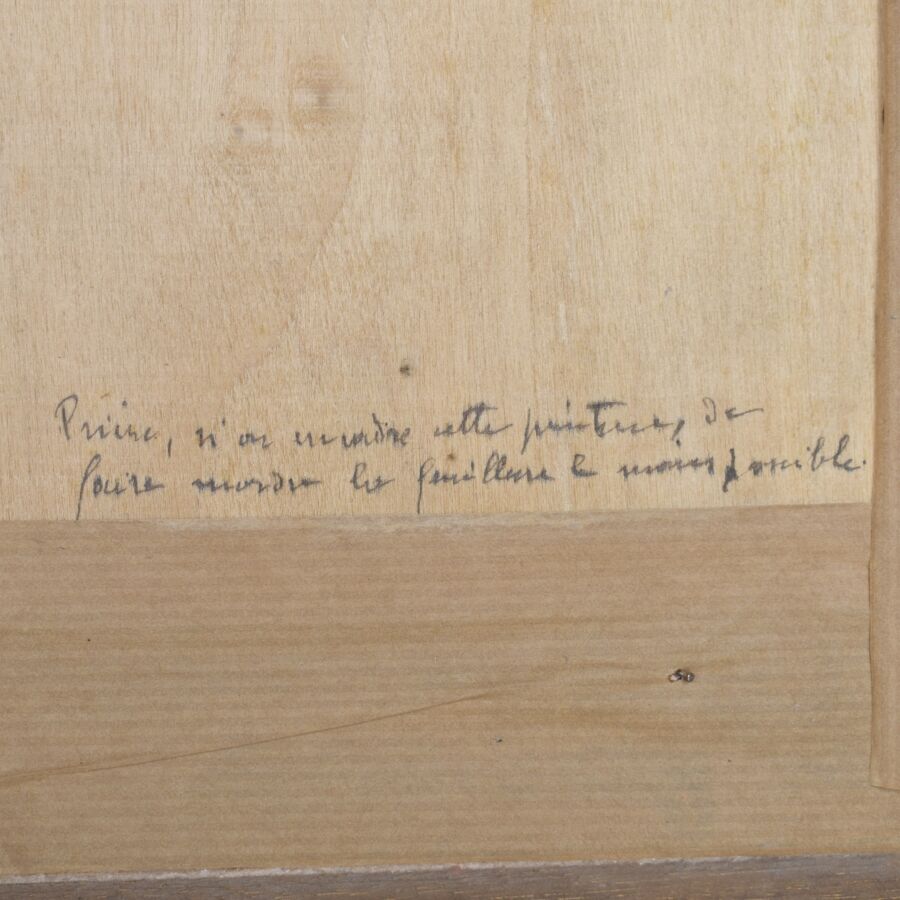 Prière, si on encadre cette peinture, de
faire mordre la feuillure le moins possible.